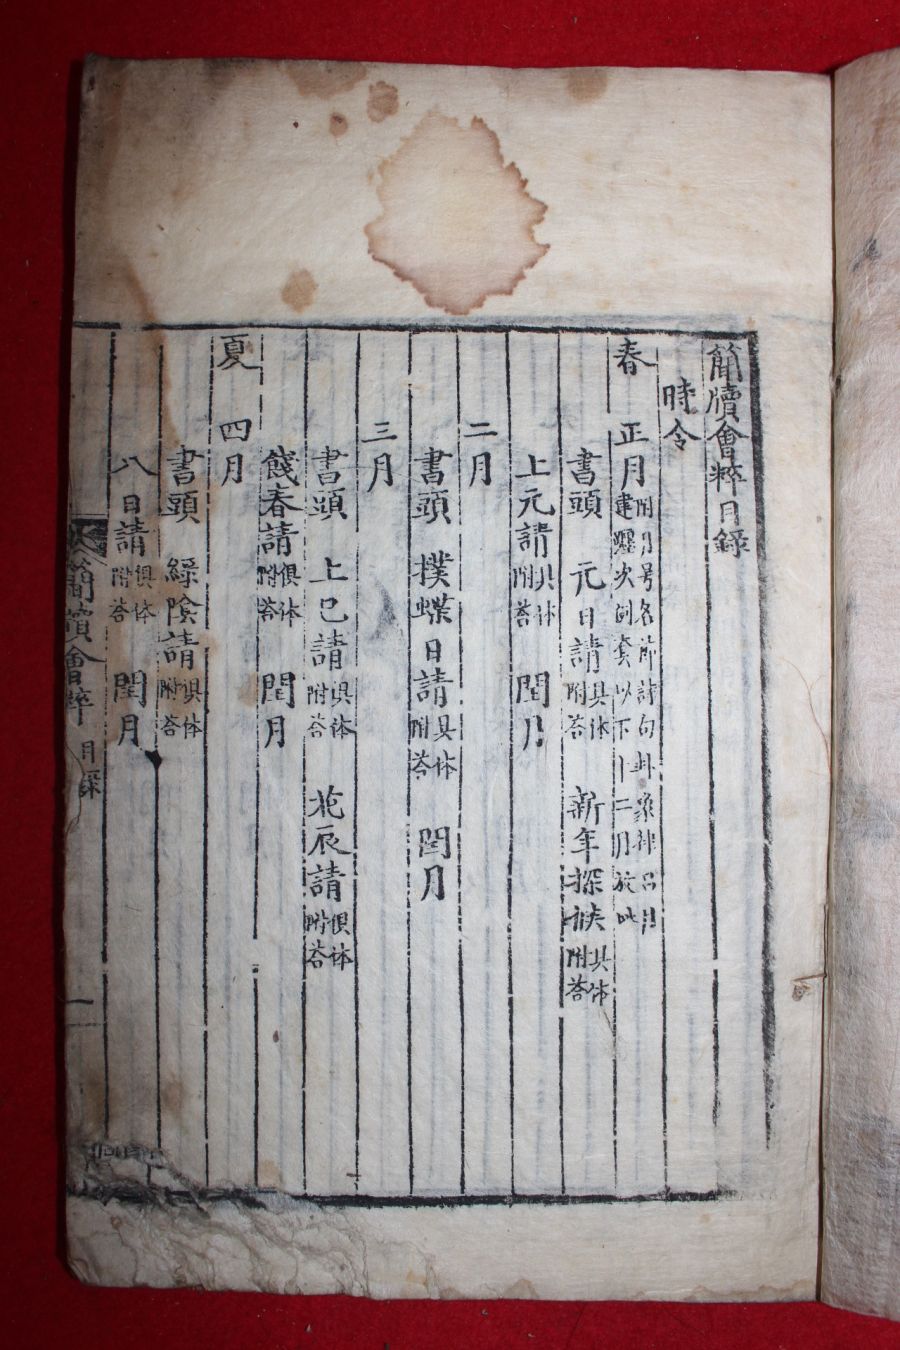 簡牘會粹目錄
時令
春 正月 附月号名節詩句卦象律呂月建躔次同套以下十二月放此
書頭 元日請 具体附答 新年探候 具体附答
上元請 具体附答 閏月
二月
書頭 撲蝶日請 具体附答 閏月
三月
書頭 上巳請 具体附答 北辰請 俱体附答
餞春請 俱体附答 閏月
夏 四月
書頭 綠陰請 俱体附答
八日請 俱体附答 閏月
簡牘會粹 目錄 一